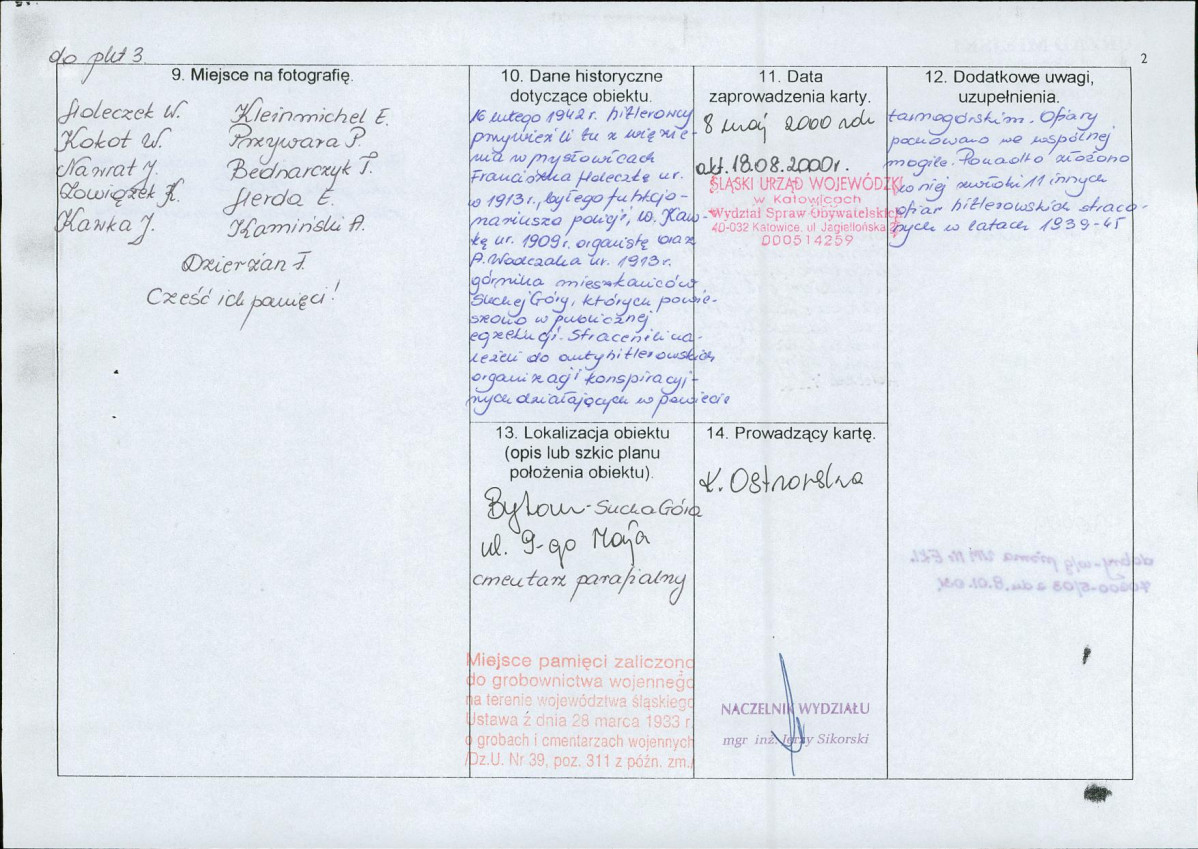 do pkt 3.
2
9. Miejsce na fotografię.
Holeczek W. Kleinmichel E.
Kokot W. Przywara P.
Nawrat J. Bednarczyk T.
Zowiązek K. Herda E.
Kawka J. Kamiński A.
Dzierżan T.
Cześć ich pamięci!
10. Dane historyczne
dotyczące obiektu.
16 lutego 1942 r. hitlerowcy
przywieźli tu z więzie-
nia w mysłowicach
Franciszka Holeczka ur.
w 1913 r., byłego funkcjo-
nariusza policji, W. Kaw-
kę ur. 1909 r. organistę oraz
A. ur. 1913 r.
górnika mieszkańców
Suchej Góry, których powie-
szono w publicznej
egzekucji. Straceni na-
leżeli do antyhitlerowskich
organizacji konspiracyj-
nych działających w powiecie
11. Data
zaprowadzenia karty.
8 maj 2000 rok
akt. 18.08.2000r.
ŚLĄSKI URZĄD WOJEWÓDZKI
w Katowicach
Wydział Spraw Obywatelskich
40-032 Katowice, ul Jagiellońska
000514259
12. Dodatkowe uwagi,
uzupełnienia.
tarnogórskim. Ofiary
pochowano we wspólnej
mogile. Ponadto złożono
w niej zwłoki 11 innych
ofiar hitlerowskich straco-
nych w latach 1939-45
13. Lokalizacja obiektu
(opis lub szkic planu
położenia obiektu).
Bytom - Sucha Góra
ul. 9-go Maja
cmentarz parafialny
Miejsce pamięci zaliczono
do grobownictwa wojennego
na terenie województwa śląskiego
Ustawa z dnia 28 marca 1933 r.
o grobach i cmentarzach wojennych
/Dz.U. Nr 39, poz. 311 z późn. zm./
14. Prowadzący kartę.
K. Ostrowska
NACZELNIK WYDZIAŁU
mgr inż. Jerzy Sikorski